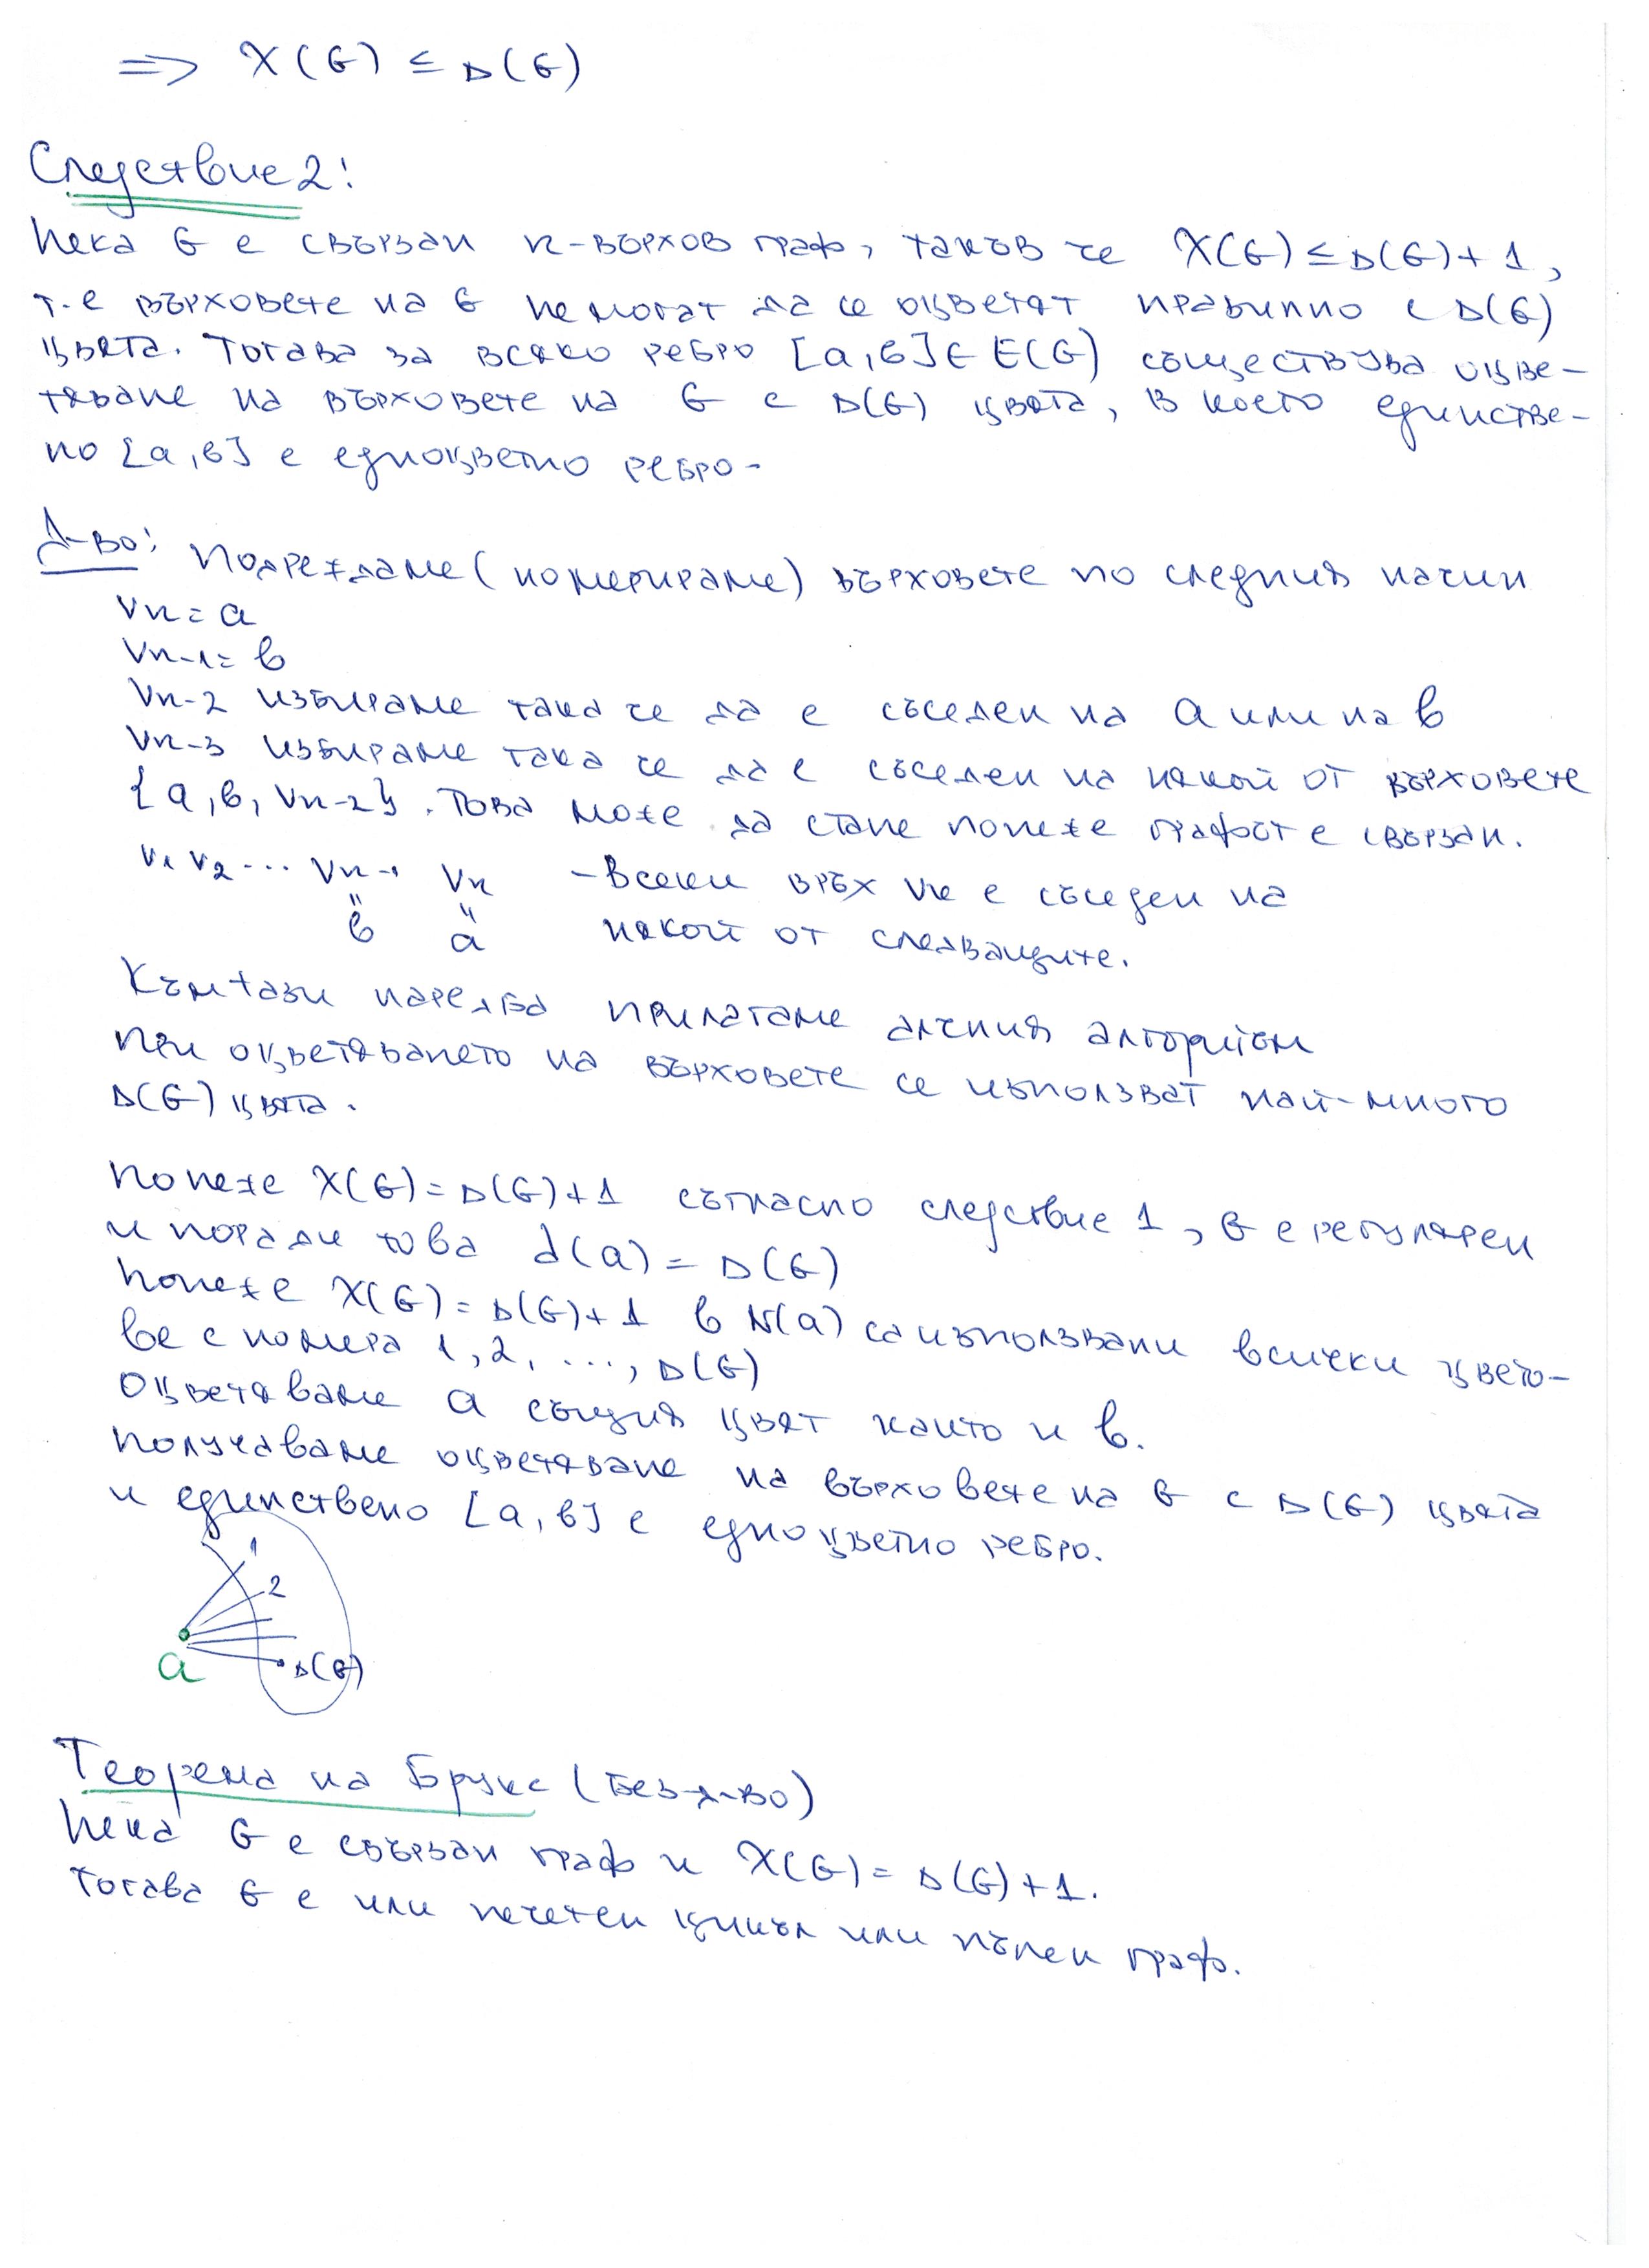 => χ(G) ≤ Δ(G)
Следствие 2:
Нека G е свързан n-върхов граф, такъв че χ(G) ≤ Δ(G)+1,
т.е върховете на G не могат да се оцветят правилно с Δ(G)
цвята. Тогава за всяко ребро [a,в] ∈ E(G) съществува оцве-
тяване на върховете на G с Δ(G) цвята, в което единстве-
но [a,в] е едноцветно ребро.
Д-во: Подреждаме (номерираме) върховете по следния начин
Vn = a
Vn-1 = в
Vn-2 избираме така че да е съседен на a или на в
Vn-3 избираме така че да е съседен на някой от върховете
{a,в,Vn-2}. Това може да стане понеже графът е свързан.
V1 V2 ... Vn-1 Vn - Всеки връх Vk е съседен на
" " някой от следващите.
в a
Към тази наредба прилагаме алчния алгоритъм
При оцветяването на върховете се използват най-много
Δ(G) цвята.
Понеже χ(G) = Δ(G)+1 съгласно следствие 1, G е регулярен
и поради това d(a) = Δ(G)
Понеже χ(G) = Δ(G)+1 в N(a) са използвани всички цвето-
ве с номера 1,2, ..., Δ(G)
Оцветяваме a същия цвят както и в.
Получаваме оцветяване на върховете на G с Δ(G) цвята
и единствено [a,в] е едноцветно ребро.
1
2
a
Δ(G)
Теорема на Брукс (Без д-во)
Нека G е свързан граф и χ(G) = Δ(G)+1.
Тогава G е или нечетен цикъл или пълен граф.